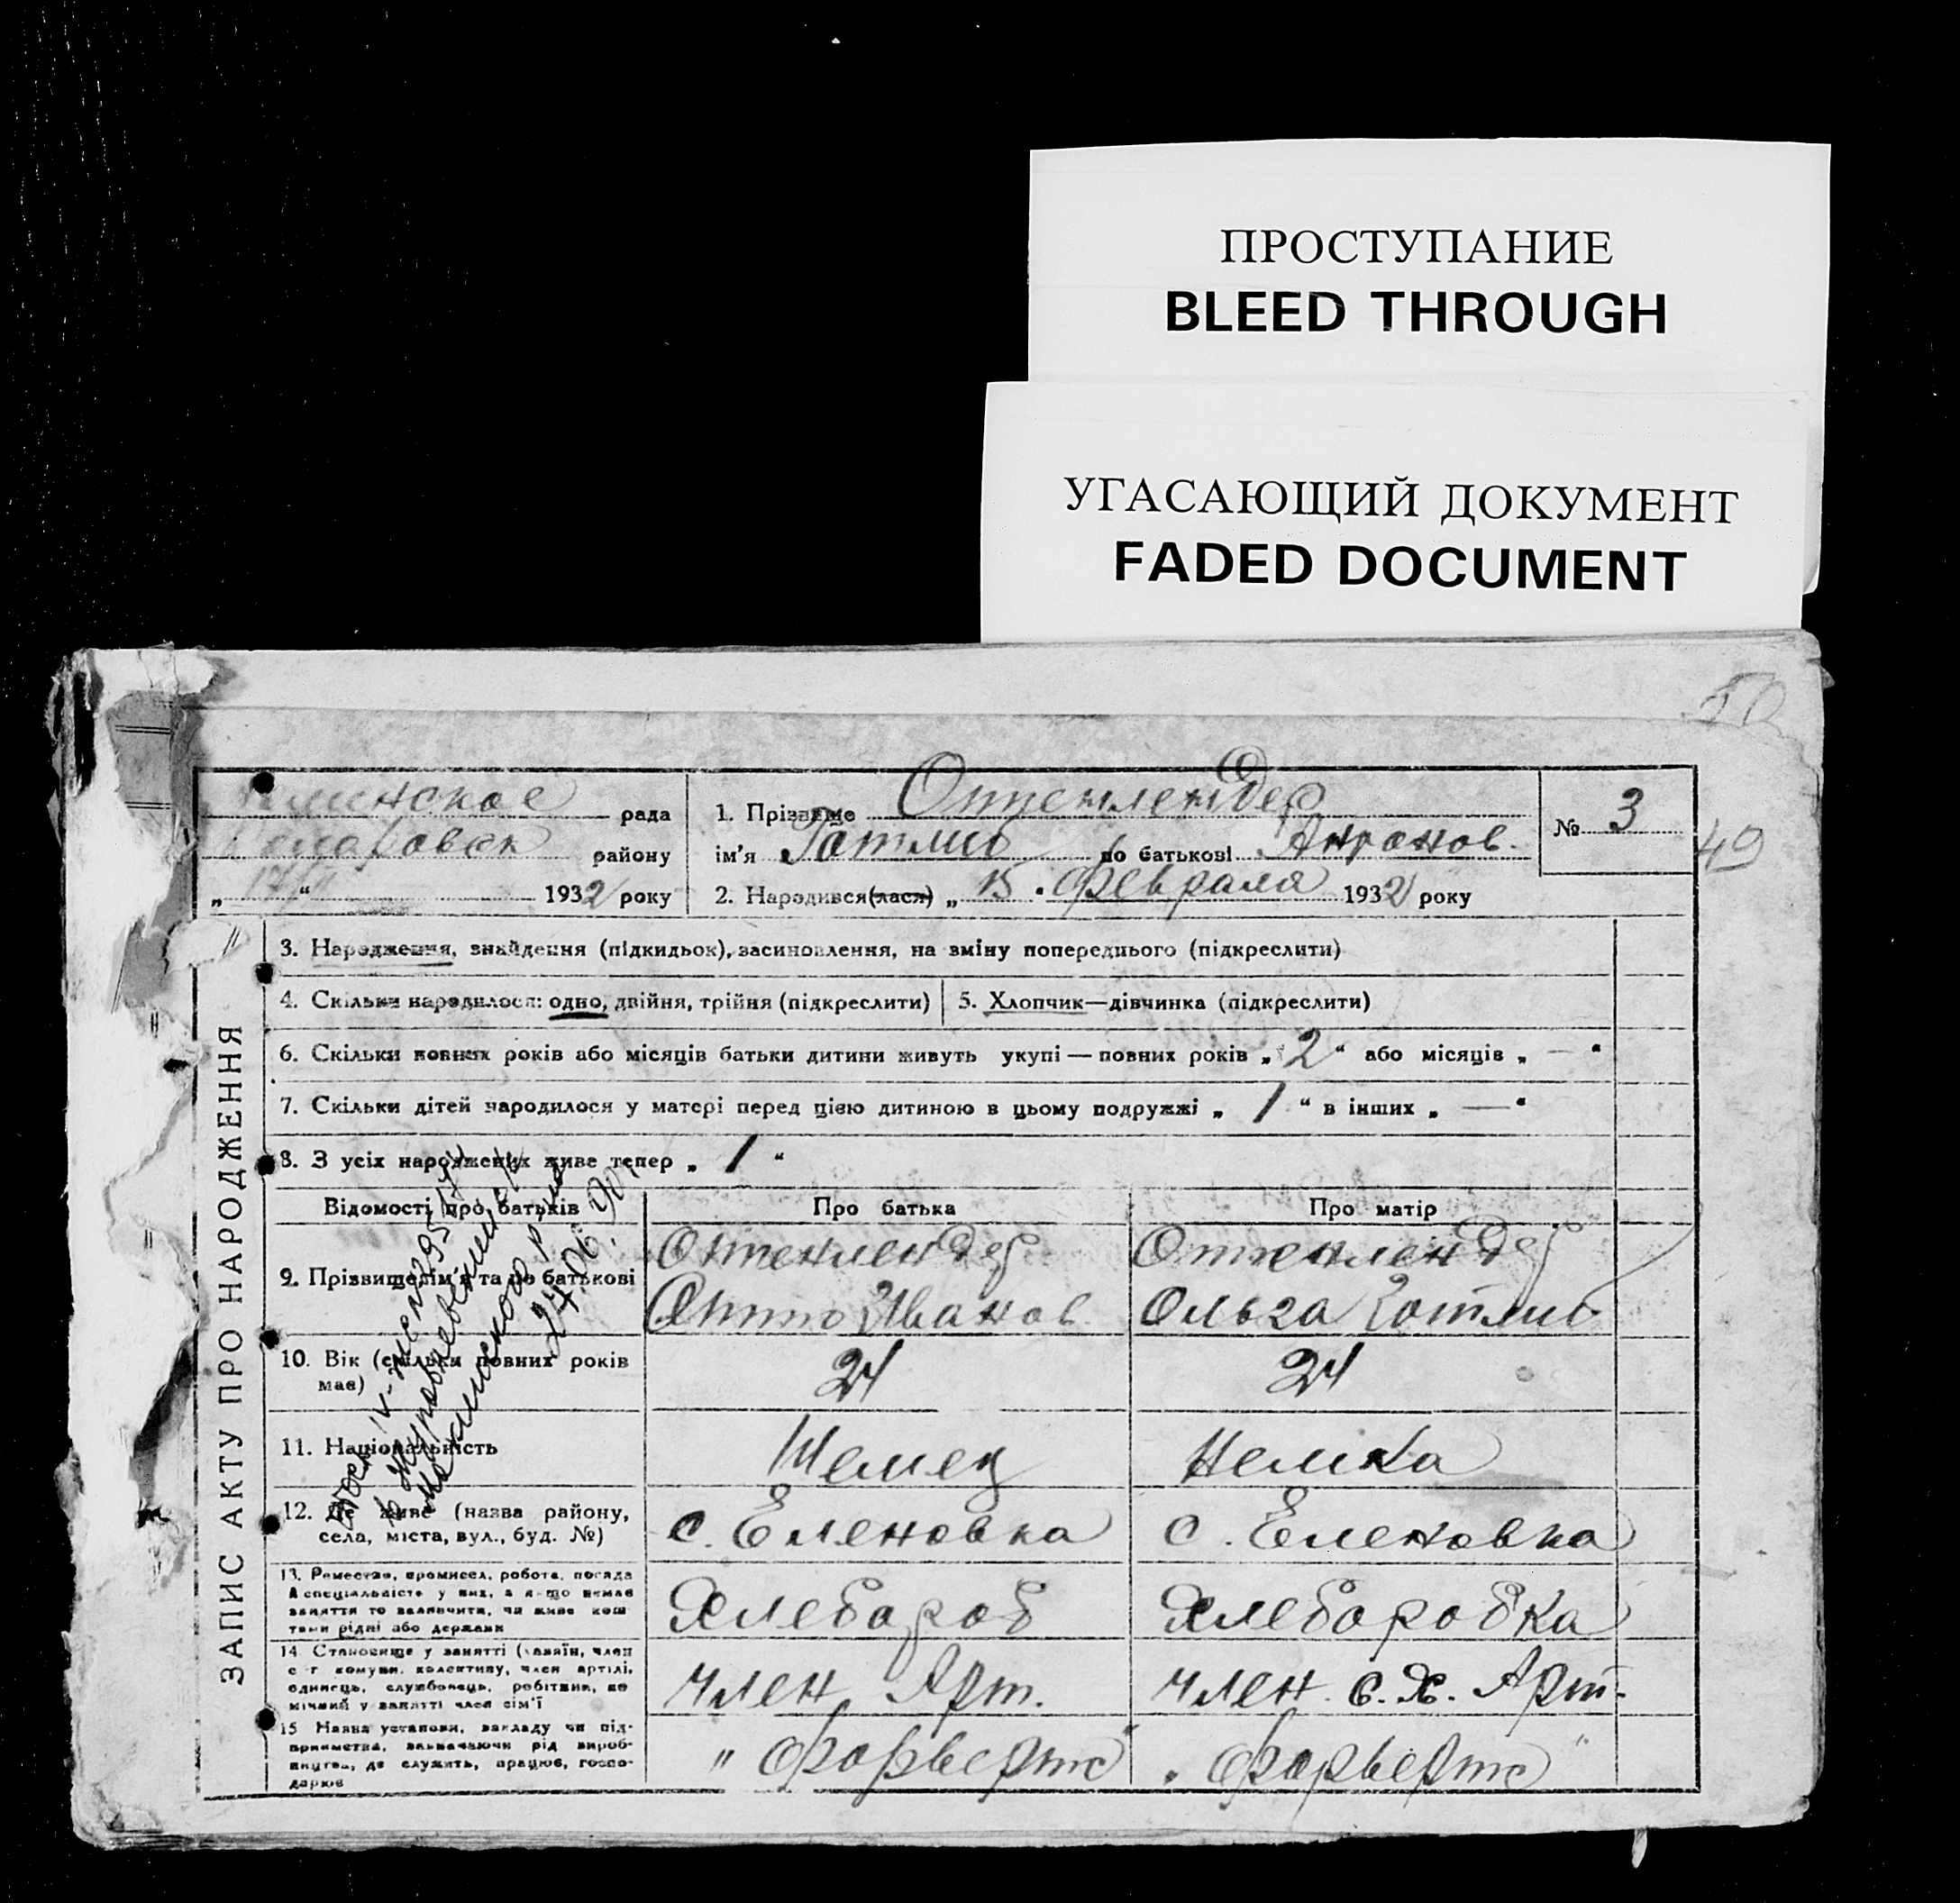 ПРОСТУПАНИЕ
BLEED THROUGH
УГАСАЮЩИЙ ДОКУМЕНТ
FADED DOCUMENT
50
рада
району
„ “ 1932 року
1. Прізвище Оттенлендер
ім'я Готлиб по батькові
2. Народився(лася) „ 15 . февраля 1932 року
№ 3
49
ЗАПИС АКТУ ПРО НАРОДЖЕННЯ
3. Народження, знайдення (підкидьок), засиновлення, на зміну попереднього (підкреслити)
4. Скільки народилося: одно, двійня, трійня (підкреслити)
5. Хлопчик—дівчинка (підкреслити)
6. Скільки повних років або місяців батьки дитини живуть укупі — повних років „ 2 “ або місяців „ — “
7. Скільки дітей народилося у матері перед цією дитиною в цьому подружжі „ 1 “ в інших „ — “
8. З усіх народжених живе тепер „ 1 “
Відомості про батьків
Про батька
Про матір
9. Прізвище ім'я та по батькові
Оттенлендер
Отто Иванов
Оттенлендер
Ольга Готлиб
10. Вік (скільки повних років
має)
24
24
11. Національність
Немец
Немка
12. Де живе (назва району,
села, міста, вул., буд. №)
с. Еленовка
с. Еленовка
24.06.90
13. Ремество, промисел, робота, посада
й спеціальність у них, а якщо немає
заняття то зазначити, чи живе кош
тами рідні або держави
Хлебороб
Хлеборобка
14 Становище у занятті (хазяїн, член
с г комуни, колективу, член артілі,
одинець, службовець, робітник, по
мічний у занятті член сім'ї
член Арт.
член с. х. Арт.
15 Назва установи, закладу чи під-
приємства, зазначаючи рід вироб-
ництва, де служить, працює, госпо-
дарює
„ Форвертс “
„ Форвертс “